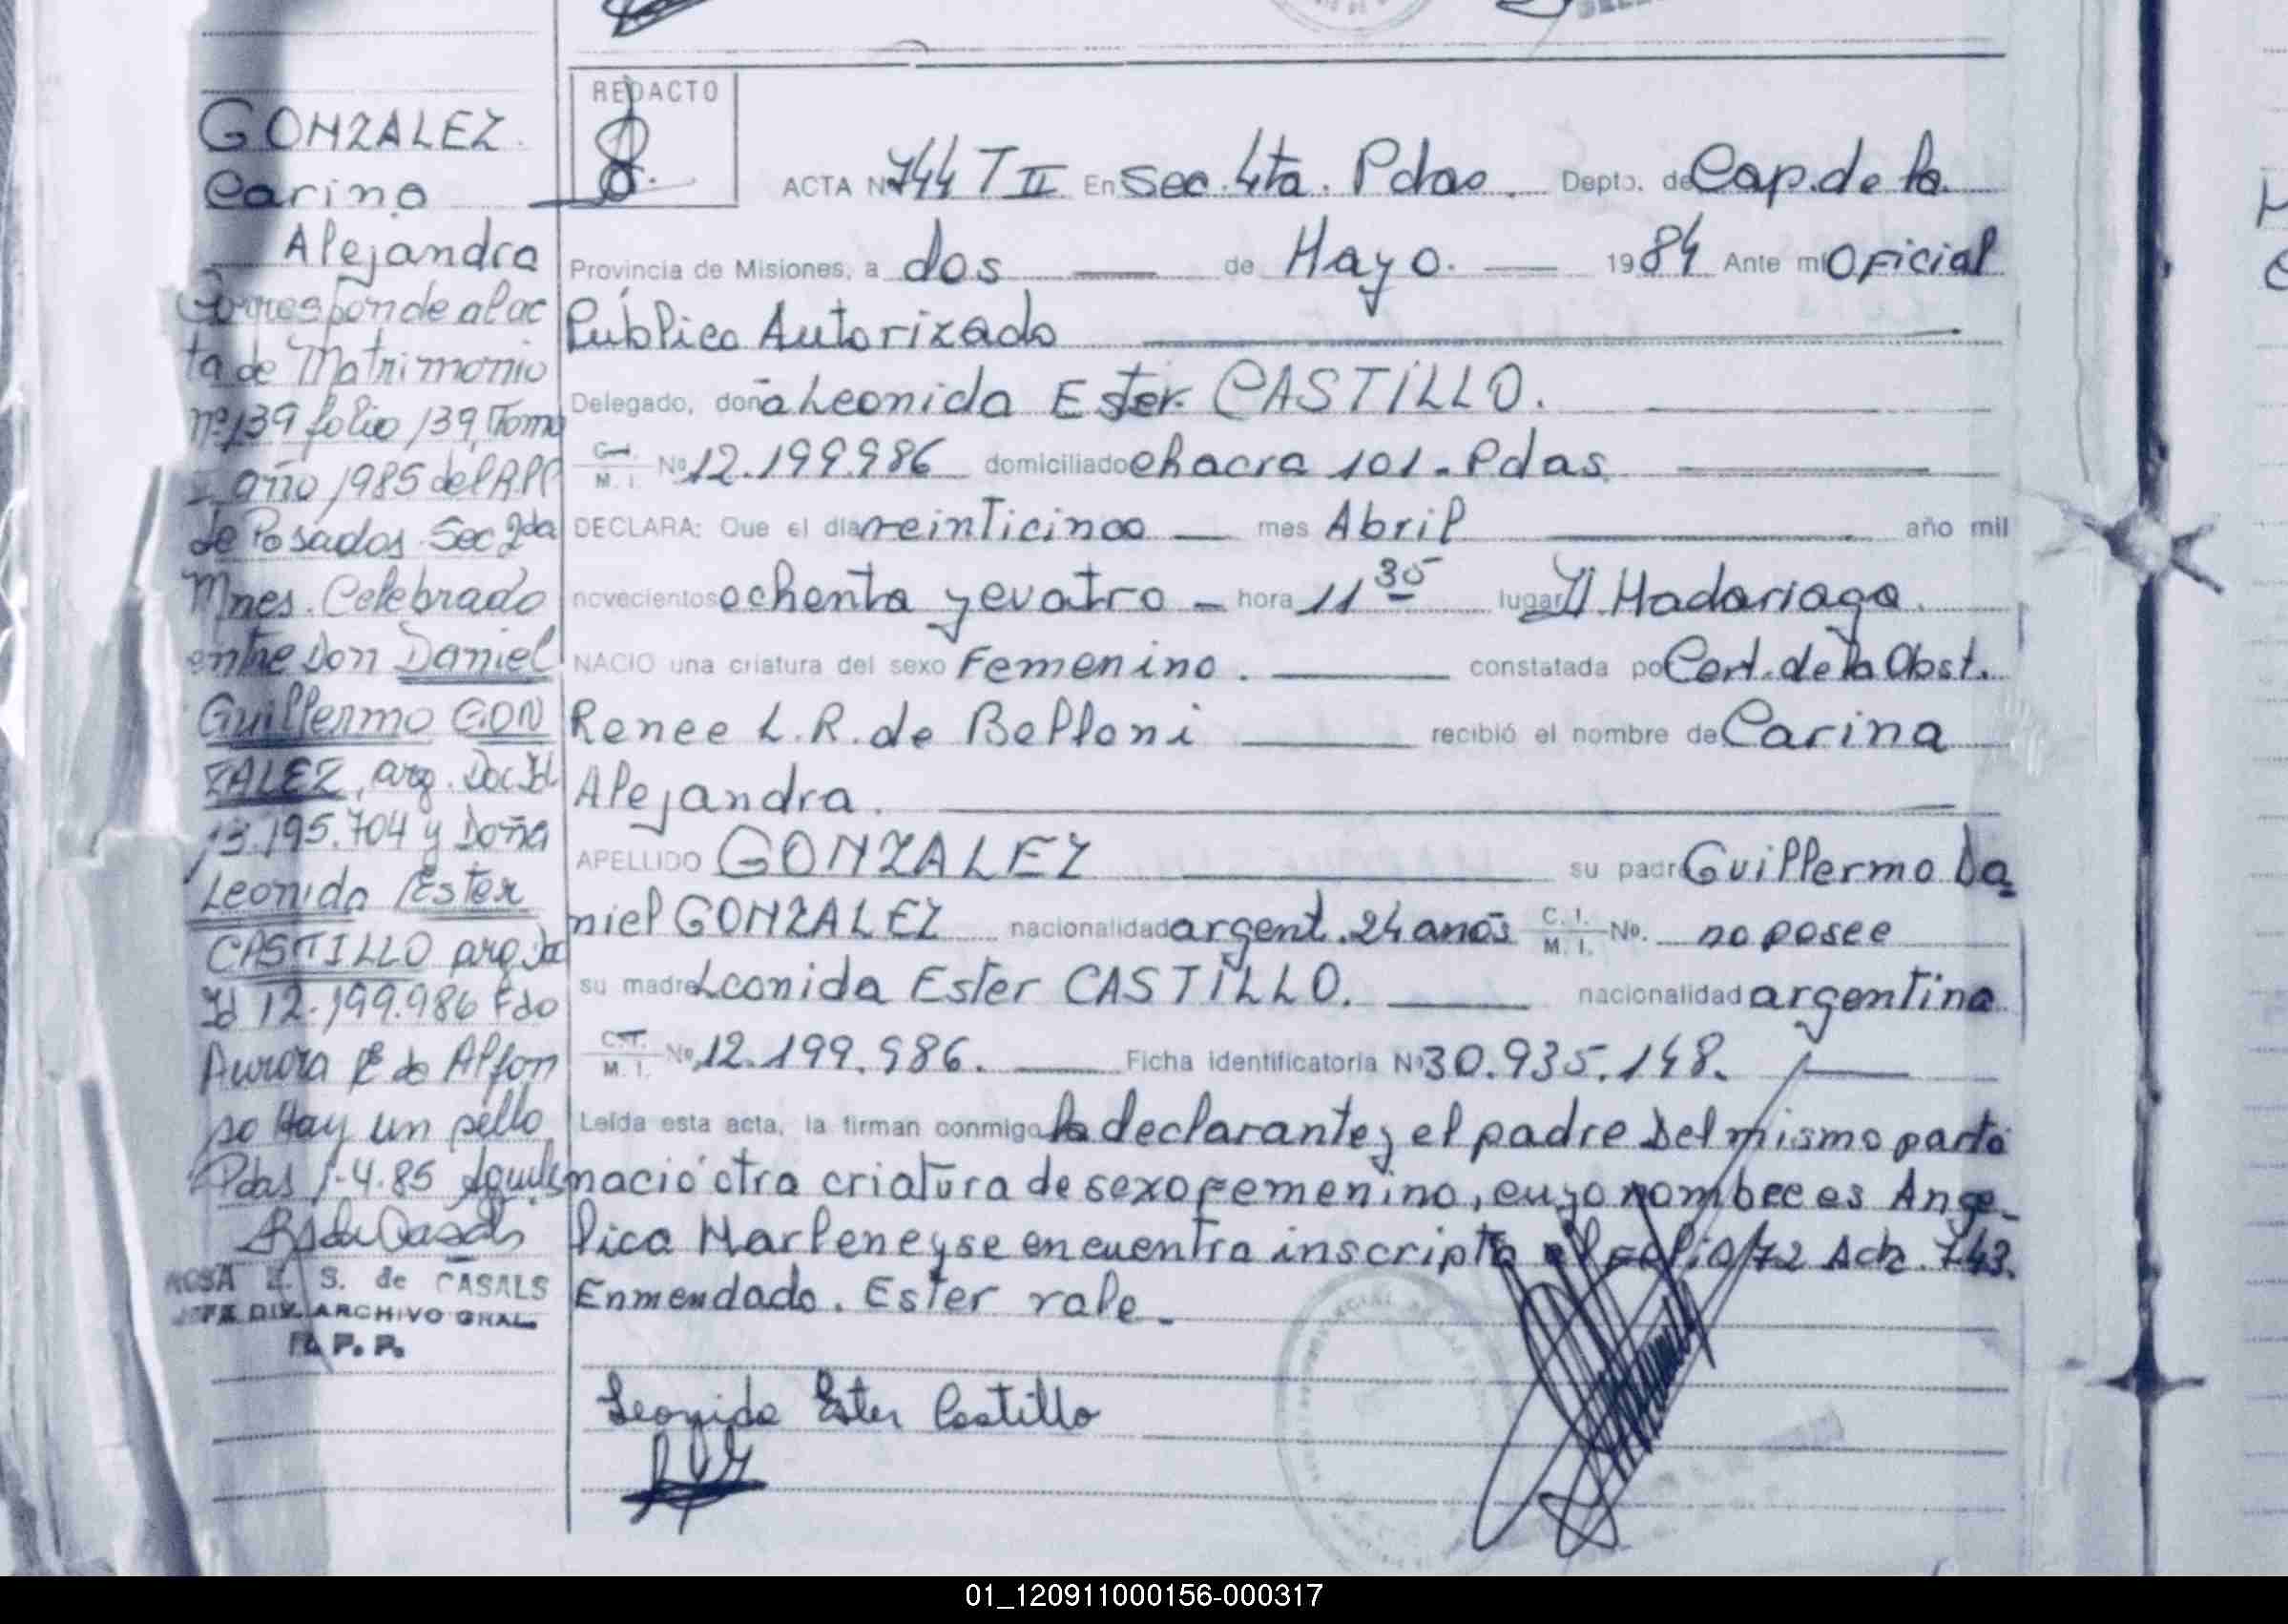 REDACTO
GONZALEZ
Carina
Alejandra
Corresponde al ac
ta de Matrimonio
nº 139 folio 139, Tomo
I año 1985 del R.P.P
de Posadas Sec 2da
Mnes. Celebrado
entre Don Daniel
Guillermo GON
ZALEZ, arg. Doc Id
13.195.704 y Doña
Leonida Ester
CASTILLO arg Do
Id 12.199.986 Fdo
Aurora E de Alfon
so Hay un sello
Pdas 1-4-85
ROSA E. S. de CASALS
JEFA DIV. ARCHIVO GRAL.
R. P. P.
ACTA Nº 744 T II En Sec. 4ta. Pdas. Depto. de Cap. de la
Provincia de Misiones, a dos de Mayo. 1984 Ante mi Oficial
Público Autorizado
Delegado, doña Leonida Ester CASTILLO.
C.I. M. I. Nº 12.199.986 domiciliado chacra 101 - Pdas
DECLARA: Que el día veinticinco mes Abril año mil
novecientos ochenta y cuatro - hora 11 35 lugar H. Madariaga.
NACIO una criatura del sexo Femenino. constatada por Cert. de la Obst.
Renee L. R. de Belloni recibió el nombre de Carina
Alejandra.
APELLIDO GONZALEZ su padre Guillermo Da
niel GONZALEZ nacionalidad argent. 24 años C. I. M. I. No. no posee
su madre Leonida Ester CASTILLO. nacionalidad argentina
C. I. M. I. Nº 12.199.986. Ficha identificatoria Nº 30.935.148.
Leída esta acta, la firman conmigo la declarante y el padre Del mismo parto
nació otra criatura de sexo femenino, cuyo nombre es Ange-
lica Marlene y se encuentra inscripta al folio 172 Acta 743.
Enmendado. Ester vale -
Leonida Ester Castillo
01_120911000156-000317